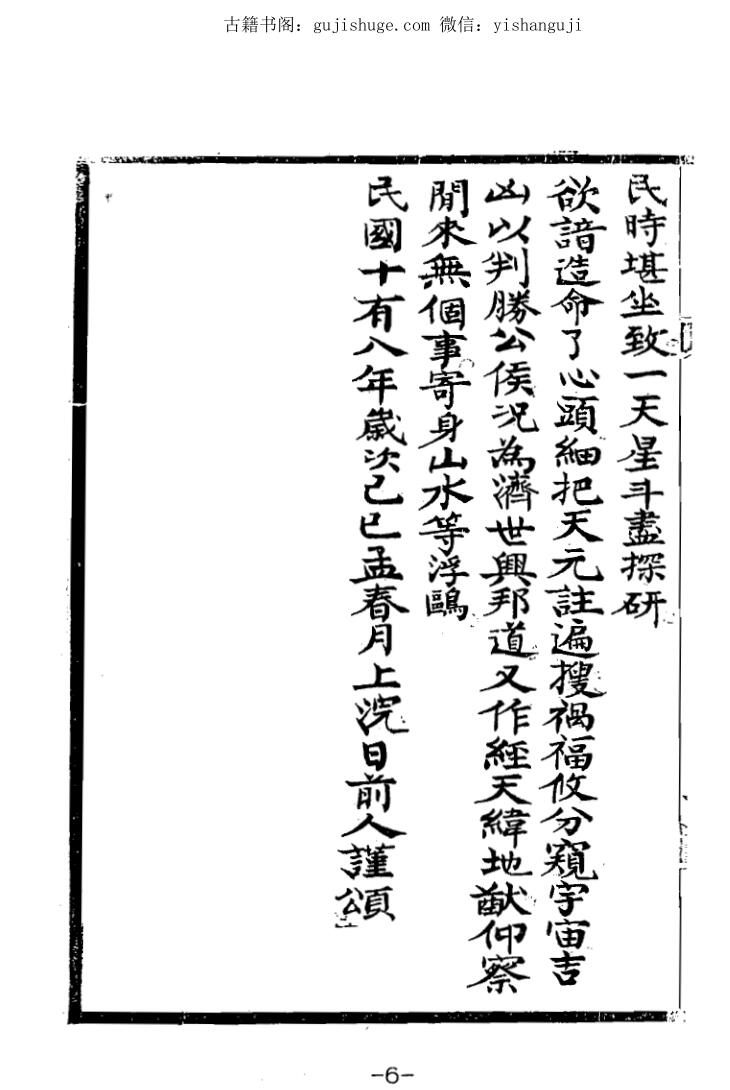 古籍书阁：gujishuge.com 微信：yishanguji
民時堪坐致一天星斗盡探研
欲諳造命了心頭細把天元註遍搜禍福攸分窺宇宙吉
凶以判勝公侯況為濟世興邦道又作經天緯地猷仰察
閒來無個事寄身山水等浮鷗
民國十有八年歲次己巳孟春月上浣日前人謹頌
-6-